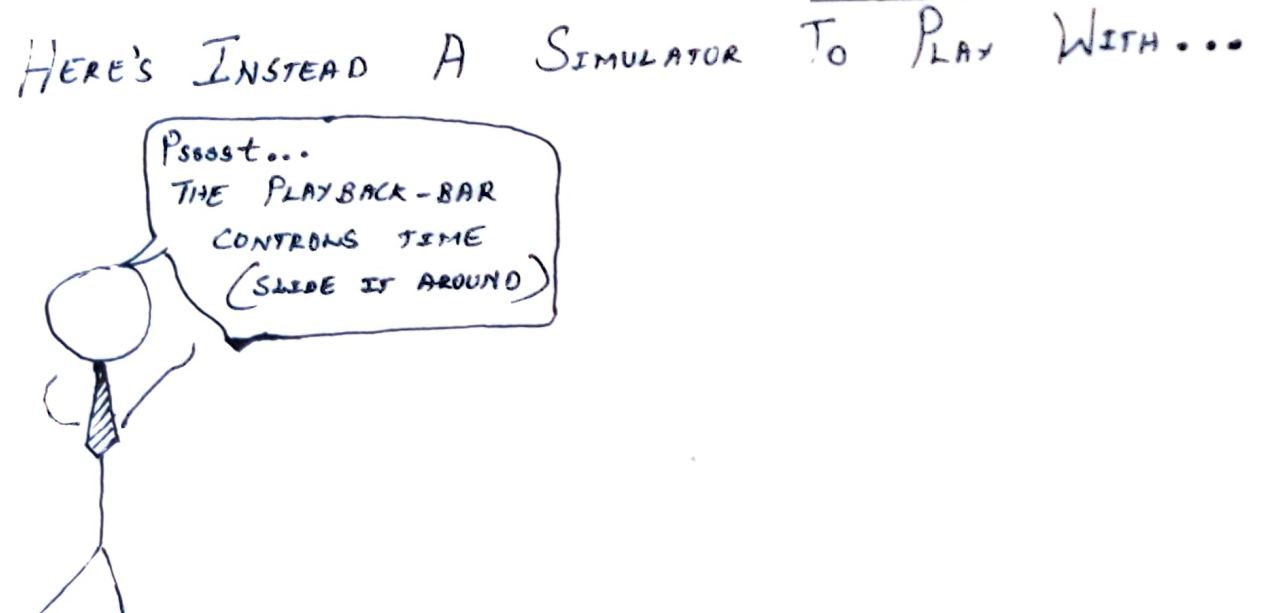 HERE'S INSTEAD A SIMULATOR TO PLAY WITH...
Psssst...
THE PLAYBACK-BAR
CONTROLS TIME
(SLIDE IT AROUND)